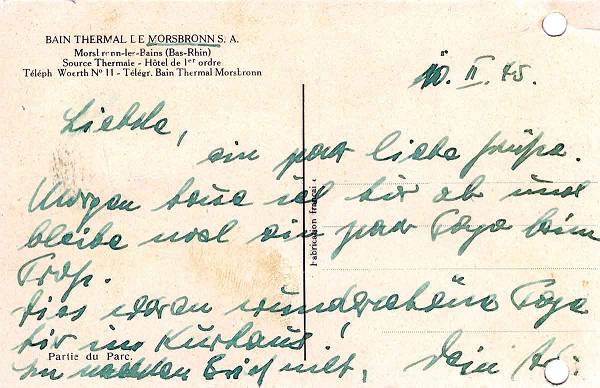 BAIN THERMAL DE MORSBRONN S. A.
Morsbronn-les-Bains (Bas-Rhin)
Source Thermale - Hôtel de 1er ordre
Téléph Woerth N° 11 - Télégr. Bain Thermal Morsbronn
10. II. 45.
Liebste,
ein paar liebe Grüße.
Morgen haue ich hier ab und
bleibe noch ein paar Tage beim
Tross.
Dies waren wunderschöne Tage
hier im Kurhaus!
Fabrication française
Partie du Parc.
Brief mit, Dein